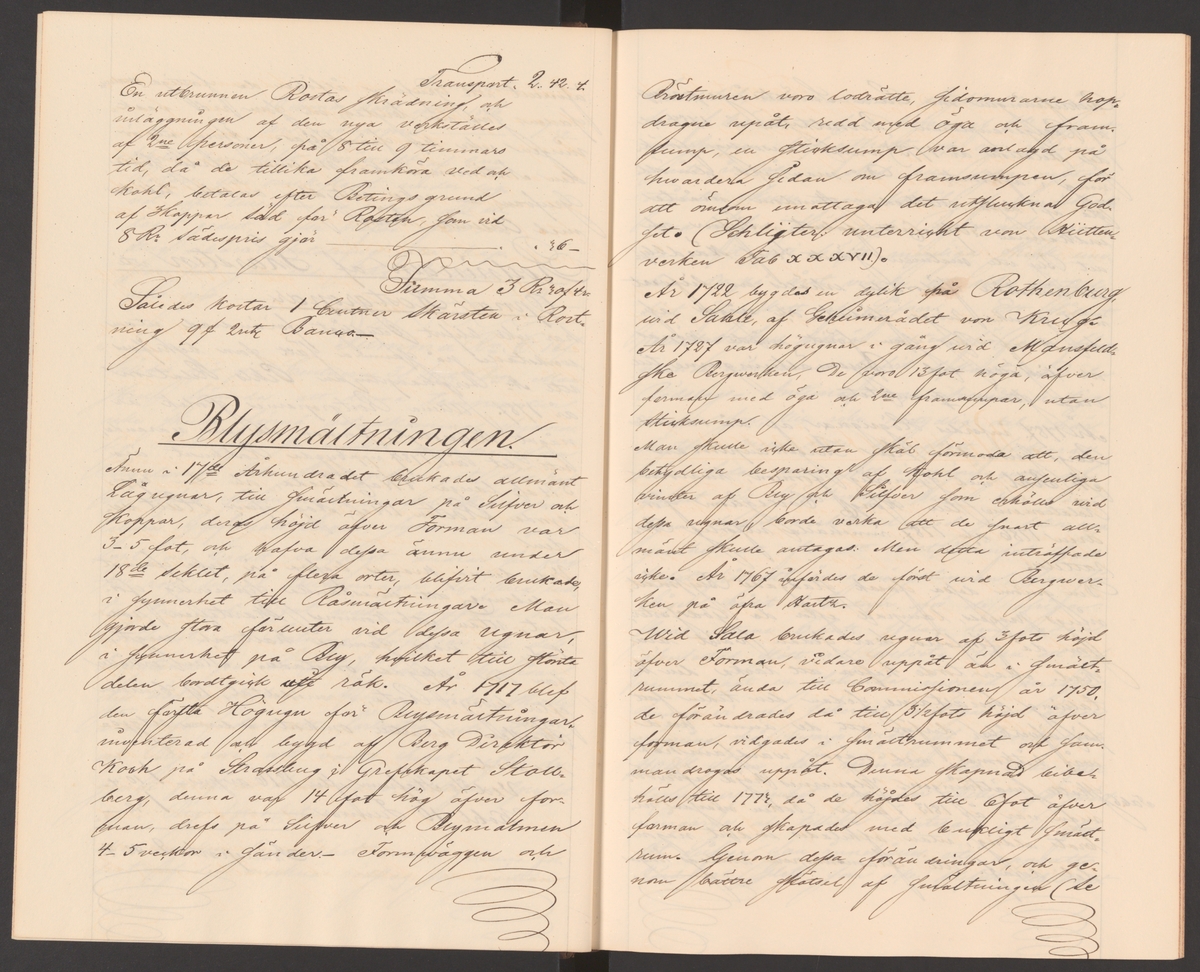 Transport. 2. 42. 4.
En utbrunnen Rostas skrädning, och
inläggningen af den nya verkställes
af 2ne personer, på 8 till 9 timmars
tid, då de tillika framköra ved och
kohl, betalas efter Betingsgrund
af 3 kappar Säd för Rosten, som vid
8 Rr Sädespris gjör . 36 –
Summa 3 Rr 30 4
Således kostar 1 Centner Skärsten i Rost-
ning 9
Blysmältningen.
Ännu i 17de Århundradet brukades allmänt
Lågugnar, till smältningar på Silfver och
Koppar, deras höjd öfver Forman var
3–5 fot, och hafva dessa ännu under
18de Seklet, på flera orter, blifvit brukade,
i synnerhet till Råsmältningar. Man
gjorde stora förluster vid dessa ugnar,
i synnerhet på Bly, hvilket till största
delen bortgick uti rök. År 1717 blef
den första Högugn för Blysmältningar
inventerad och bygd af Berg Direktör
Koch på Strassbug i Grefskapet Stoll-
berg, denna var 14 fot hög öfver for-
man, drefs på Silfver och Blymalmen
4–5 veckor i sänder. – Formväggen och
Bröstmuren voro lodrätte, sidomurarne hop-
dragne upåt, redd med öga och fram-
sump, en sticksump var anlagd på
hwardera sidan om framsumpen, för
att ömsom emottaga det utstuckna God-
set. (Schlüter: unterricht von Hütten-
verken Tab XXXVII).
År 1722 bygdes en dylik på Rothenburg
wid Sahle, af Geheimerådet von Kreug.
År 1727 var högugnar i gång wid Mansfeld-
ske Bergwerken, De voro 13 fot höga, öfver
forman med öga och 2ne framsumpar, utan
sticksump.
Man skulle icke utan skäl förmoda att, den
betydliga besparing af Kohl och ansenliga
vinster af Bly och Silfver som erhölls wid
dessa ugnar, borde verka att de snart all-
mänt skulle antagas. Men detta inträffade
icke. År 1767 infördes de först wid Bergwer-
ken på öfra Hartz.
Wid Sala brukades ugnar af 3 fots höjd
öfver Forman, vidare uppåt än i smält-
rummet, ända till Commissionen år 1750,
de förändrades då till 5½ fots höjd öfver
forman, vidgades i smältrummet och sam-
mandrogos uppåt. Denna skapnad bibe-
hölls till 1774, då de höjdes till 6 fot öfver
forman och skapades med bukligt smält-
rum. Genom dessa förändringar, och ge-
nom bättre skötsel af smältningen (Se